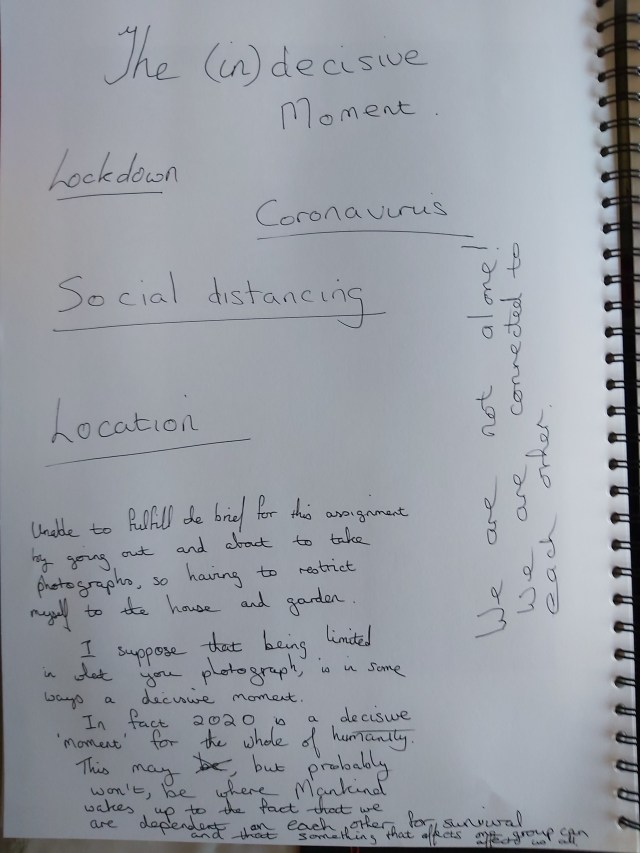 The (in)decisive
Moment.
Lockdown
Coronavirus
Social distancing
Location
We are not alone!
We are connected to
each other.
Unable to fulfill the brief for this assignment
by going out and about to take
photographs, so having to restrict
myself to the house and garden.
I suppose that being limited
in what you photograph, is in some
ways a decisive moment.
In fact 2020 is a decisive
'moment' for the whole of humanity.
This may be, but probably
won't, be where Mankind
wakes up to the fact that we
are dependent on each other for survival
and that something that affects one group can
affect us all.